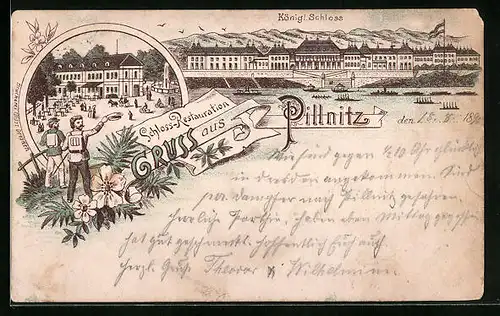 Königl. Schloss
Schloss-Restauration
Gruss aus Pillnitz
den 18
Wir sind gegen ½10 Uhr glücklich
in Dresden angekommen. Sind
per Dampfer nach Pillnitz gefahren.
Herrliche Parthie, haben eben Mittag gegessen
hat gut geschmeckt. hoffentlich Euch auch.
Herzl. Gruß Theodor & Wilhelmine